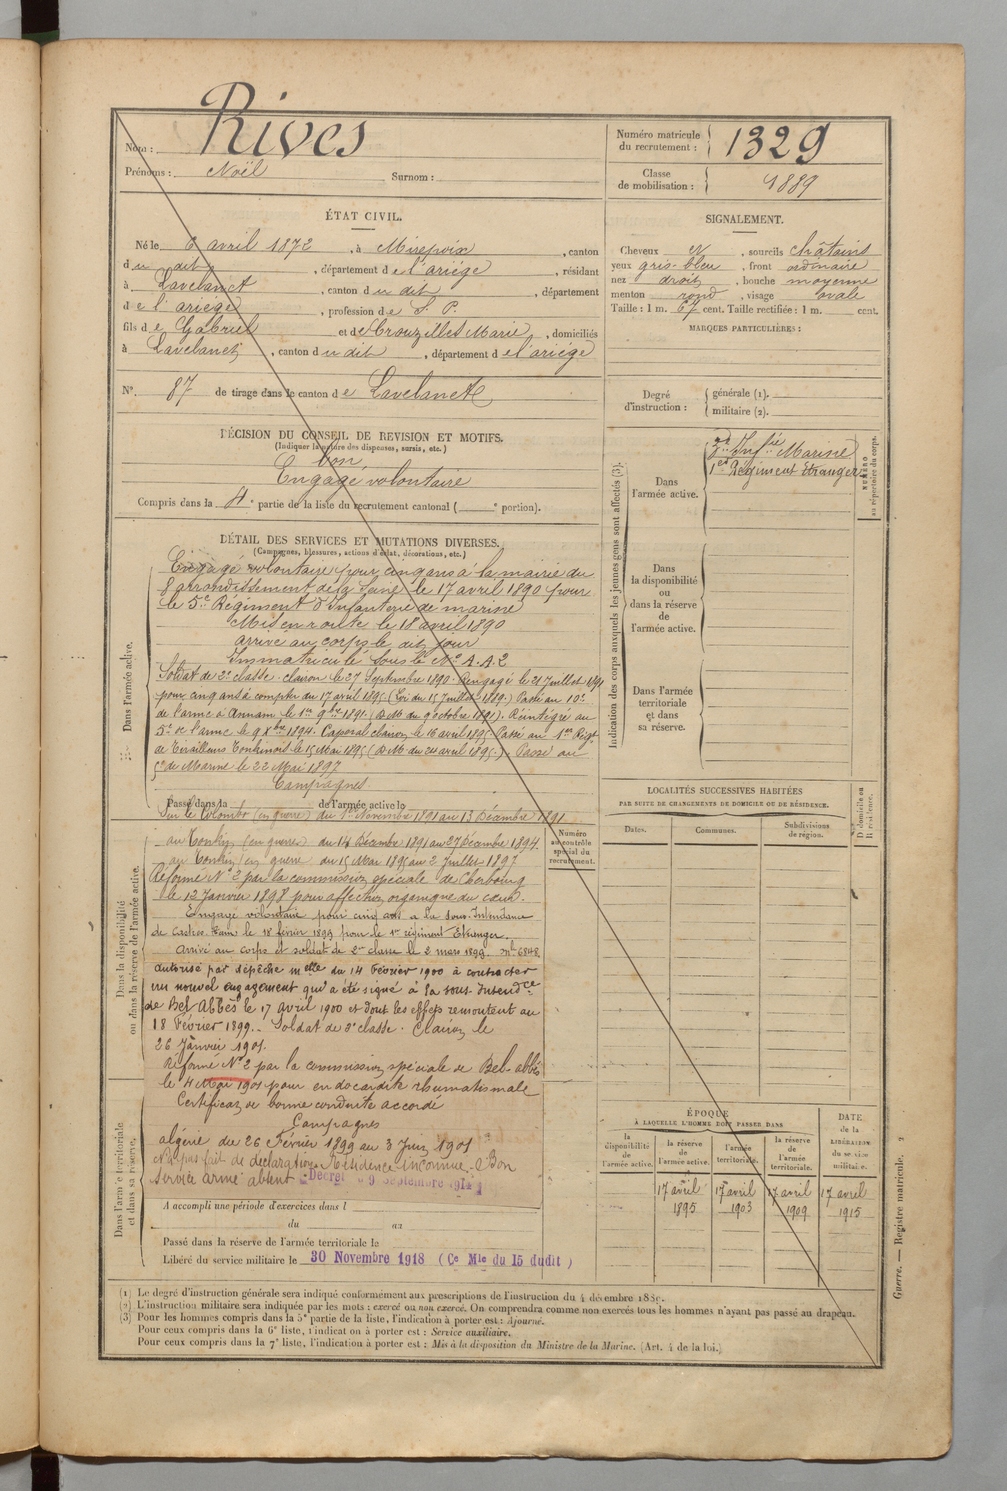 Nom : Rives
Prénoms : Noël Surnom :
Numéro matricule du recrutement : 1329
Classe de mobilisation : 1889
ÉTAT CIVIL.
Né le 6 avril 1872, à Mirepoix, canton
du dit, département de l'ariège, résidant
à Lavelanet, canton du dit, département
de l'ariège, profession de S. P.
fils de Gabriel et de Crouzilles Marie, domiciliés
à Lavelanet, canton du dit, département de l'ariège
N°. 87 de tirage dans le canton de Lavelanet
SIGNALEMENT.
Cheveux N, sourcils châtains
yeux gris-bleu, front ordinaire
nez droit, bouche moyenne
menton rond, visage ovale
Taille : 1 m. 67 cent. Taille rectifiée : 1 m. cent.
MARQUES PARTICULIÈRES :
Degré d'instruction : générale (1).
militaire (2).
DÉCISION DU CONSEIL DE REVISION ET MOTIFS.
(Indiquer la nature des dispenses, sursis, etc.)
bon
Engagé volontaire
Compris dans la 4e partie de la liste du recrutement cantonal ( e portion).
Indication des corps auxquels les jeunes gens sont affectés (3).
Dans l'armée active.
Infrie Marine
1er Régiment étranger
NUMÉRO au répertoire du corps.
Dans la disponibilité ou dans la réserve de l'armée active.
Dans l'armée territoriale et dans sa réserve.
DÉTAIL DES SERVICES ET MUTATIONS DIVERSES.
(Campagnes, blessures, actions d'éclat, décorations, etc.)
Dans l'armée active.
Engagé volontaire pour cinq ans à la mairie du
8 arrondissement de la Seine le 17 avril 1890 pour
le 5e Régiment d'Infanterie de marine
Mis en route le 18 avril 1890
arrivé au corps le dit jour
Immatriculé sous le No A.A.2
Soldat de 2e classe. clairon le 27 Septembre 1890. Rengagé le 21 Juillet 1891
pour cinq ans à compter du 17 avril 1895 (Loi du 15 Juillet 1889.) Passé au 10e
de l'arme à Annam le 1er 9bre 1891. (D.M. du 9 octobre 1891). Réintégré au
5e de l'arme le 9 Xbre 1894. Caporal clairon le 16 avril 1895. Passé au 1er Régt
de Tirailleurs Tonkinois le 15 Mai 1895 (D.M. du 24 avril 1895.). Passé au
5e de Marine le 22 Mai 1897
Campagnes
Passé dans la de l'armée active le
Sur le Colombo (en guerre) du 1er Novembre 1891 au 13 Décembre 1891
Dans la disponibilité ou dans la réserve de l'armée active.
Numéro au contrôle spécial du recrutement.
au Tonkin (en guerre) du 14 Décembre 1891 au 27 Décembre 1894.
au Tonkin (en guerre du 15 Mai 1895 au 2 Juillet 1897
Réformé No 2 par la commission spéciale de Cherbourg
le 12 Janvier 1898 pour affection organique du cœur.
Engagé volontaire pour cinq ans à la sous-Intendance
de Castres Tarn le 18 février 1899 pour le 1er régiment Etranger.
Arrivé au corps et soldat de 2e classe le 2 mars 1899.
autorisé par dépêche melle du 14 Février 1900 à contracter
un nouvel engagement qui a été signé à la sous-Intendce
de Bel Abbès le 17 avril 1900 et dont les effets remontent au
18 Février 1899. Soldat de 2e classe. Clairon le
26 Janvier 1901.
Réformé No 2 par la commission spéciale de Bel-abbès
le 4 Mai 1901 pour endocardite rhumatismale
Certificat de bonne conduite accordé
Campagnes
algérie du 26 Février 1899 au 3 Juin 1901
N'a pas fait de déclaration. Résidence inconnue. Bon
service armé absent Décret 9 Septembre 1914
Dans l'armée territoriale et dans sa réserve.
A accompli une période d'exercices dans l
du au
Passé dans la réserve de l'armée territoriale le
Libéré du service militaire le 30 Novembre 1918 (Ce Mle du 15 dudit)
LOCALITÉS SUCCESSIVES HABITÉES
PAR SUITE DE CHANGEMENTS DE DOMICILE OU DE RÉSIDENCE.
Dates. Communes. Subdivisions de région. D domicile ou R résidence.
ÉPOQUE
À LAQUELLE L'HOMME DOIT PASSER DANS
la disponibilité de l'armée active. la réserve de l'armée active. l'armée territoriale. la réserve de l'armée territoriale.
DATE de la LIBÉRATION du service militaire.
17 avril 1895 17 avril 1903 17 avril 1909 17 avril 1915
(1) Le degré d'instruction générale sera indiqué conformément aux prescriptions de l'instruction du 4 décembre 1889.
(2) L'instruction militaire sera indiquée par les mots : exercé ou non exercé. On comprendra comme non exercés tous les hommes n'ayant pas passé au drapeau.
(3) Pour les hommes compris dans la 5e partie de la liste, l'indication à porter est : Ajourné.
Pour ceux compris dans la 6e liste, l'indication à porter est : Service auxiliaire.
Pour ceux compris dans la 7e liste, l'indication à porter est : Mis à la disposition du Ministre de la Marine. (Art. 4 de la loi.)
Guerre. — Registre matricule. 2